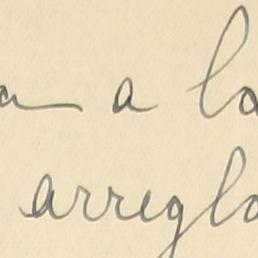 a a la
arregla